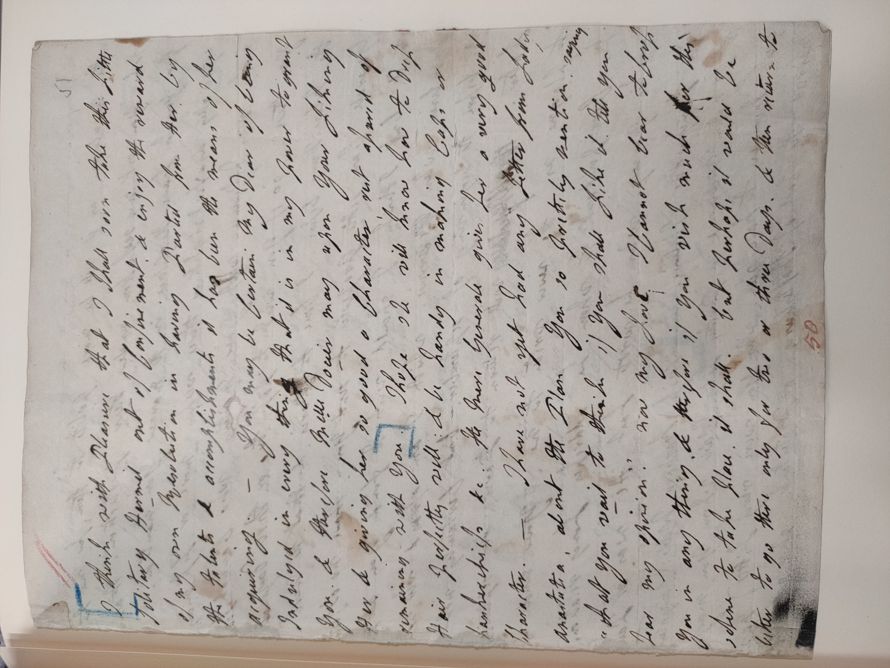 51
I think with Pleasure that I shall soon take this little
Solitary Hermit out of Confinement & enjoy the reward
of my own Resolution in having Parted from her by
the talents & accomplishments it has been the means of her
acquiring. — You may be Certain My Dear of being
Indulged in every thing that it is in my power to grant
You & therefore Melle may upon Your liking
Her & giving her so good a Character not afraid of
remaining with You. I hope she will know how to Dress
Hair Perfectly well & be handy in making Caps or
Hankerchiefs &c. the more Generale gives her a very good
Character. — I have not yet had any letter from Lady
about the Plan You so Kindly mention. saying
that you wait to think if You shall like it till you
hear my opinion: now my love I Cannot bear to
You in any thing & therefore if You wish much for this
scheme to take place it shall. but perhaps it would be
better to go there only for two or three Days. & then return to
50